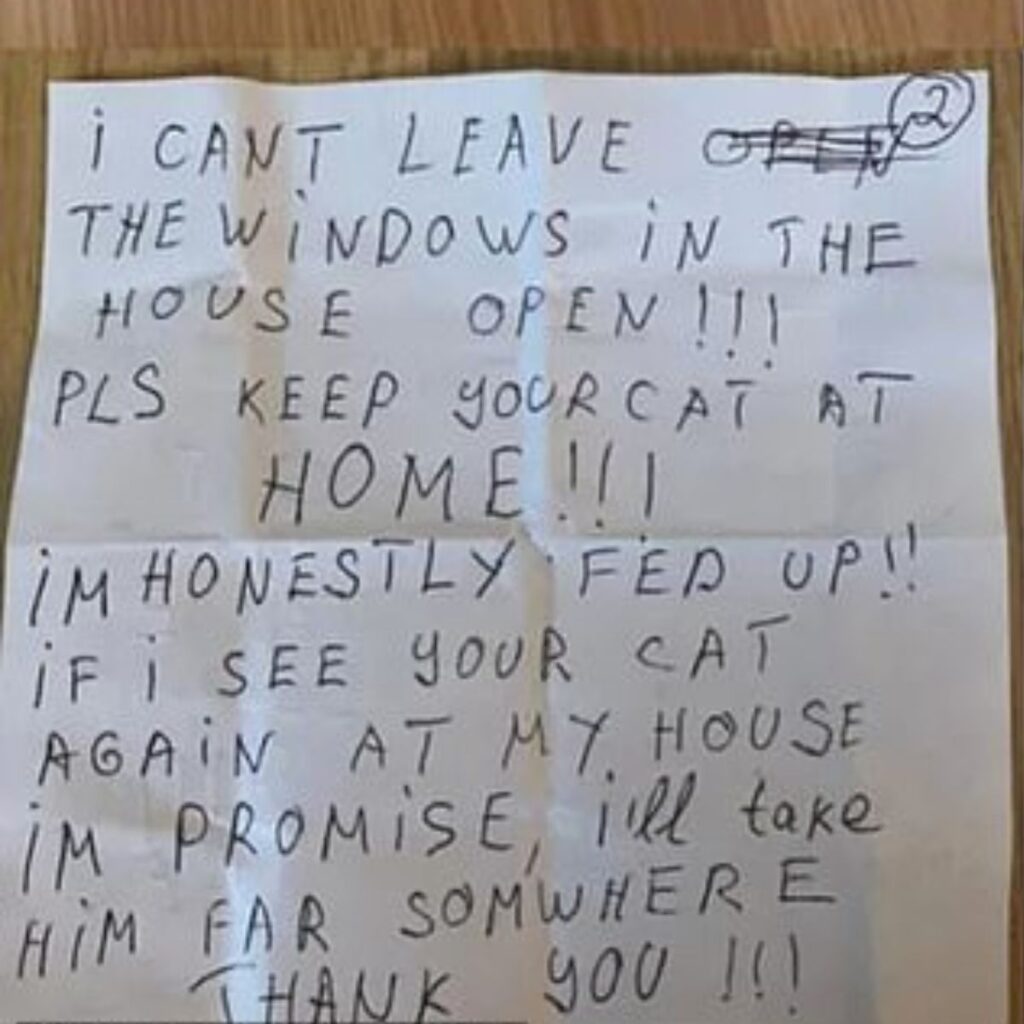 i CANT LEAVE OPEN 2
THE WiNDOWS iN THE
HOUSE OPEN!!!
PLS KEEP YOUR CAT AT
HOME!!!
iM HONESTLY FED UP!!
iF i SEE YOUR CAT
AGAiN AT MY HOUSE
iM PROMiSE, i'll take
HiM FAR SOMWHERE
THANK YOU!!!